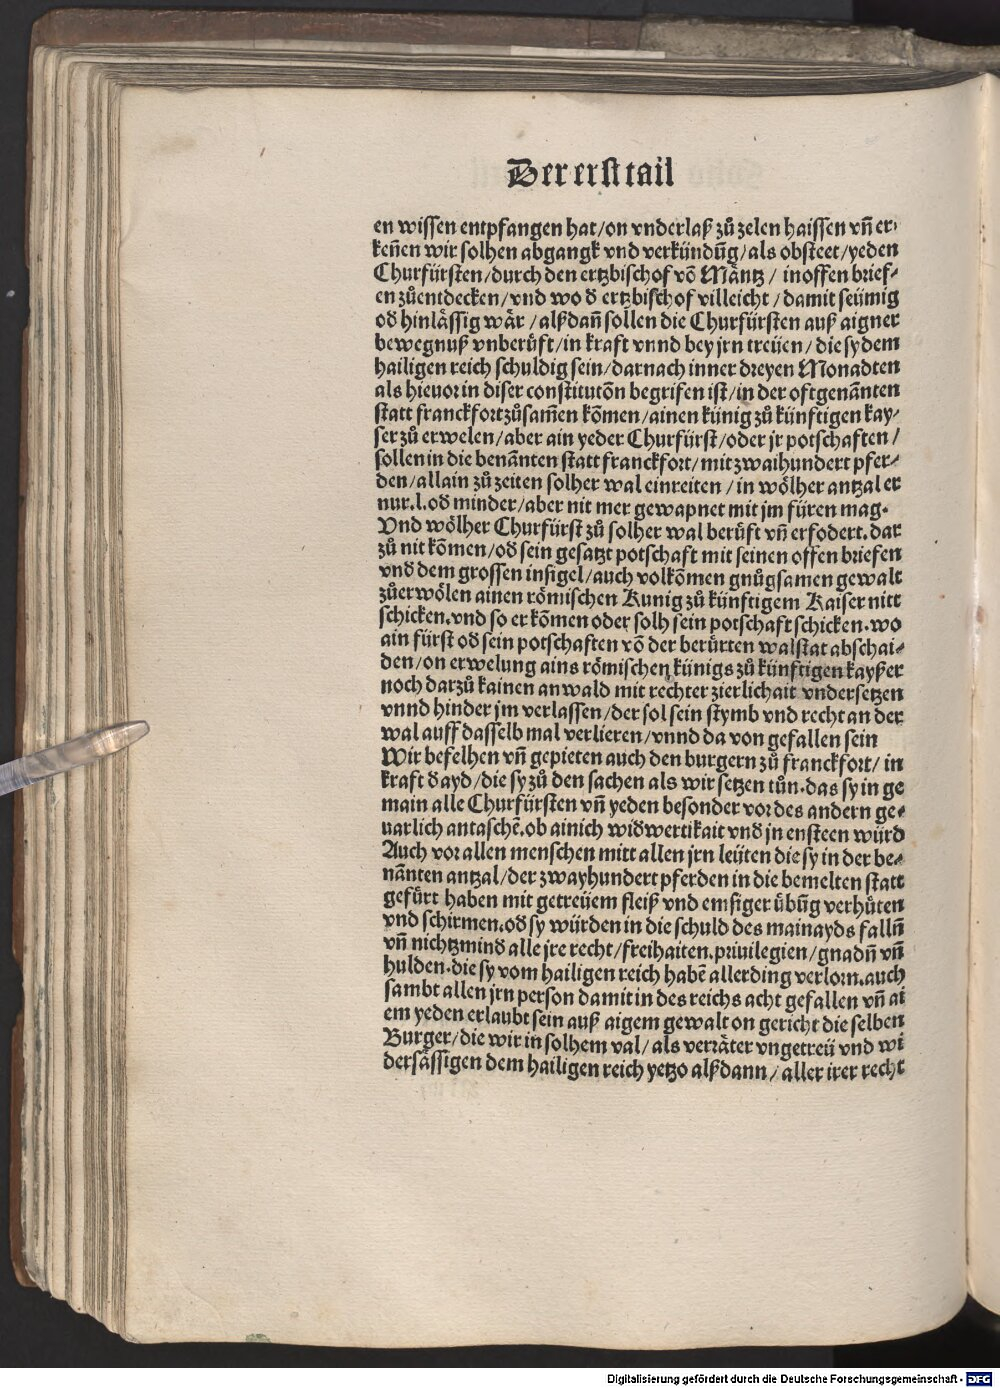 Der erst tail
en wissen entpfangen hat/on vnderlaß zů zelen haissen vñ er⸗
keñen wir solhen abgangk vnd verkündũg/als obsteet/yeden
Churfürsten/durch den ertzbischof võ Mäntz/ in offen brief⸗
en zůentdecken/vnd wo đ ertzbischof villeicht/damit seümig
ođ hinlässig wär/alßdañ sollen die Churfürsten auß aigner
bewegnuß vnberüft/in kraft vnnd bey jrn treüen/die sy dem
hailigen reich schuldig sein/darnach inner dreyen Monadten
als hieuor in diser constitutõn begrifen ist/in der oftgenãnten
statt franckfort zůsam̃en kõmen/ainen künig zů künftigen kay⸗
ser zů erwelen/aber ain yeder Churfürst/oder jr potschaften/
sollen in die benãnten statt franckfort/mit zwaihundert pfer⸗
den/allain zů zeiten solher wal einreiten/in wölher antzal er
nur.l.ođ minder/aber nit mer gewapnet mit jm füren mag.
Vnd wölher Churfürst zů solher wal berüft vñ erfodert.dar
zů nit kõmen/ođ sein gesatzt potschaft mit seinen offen briefen
vnđ dem grossen insigel/auch volkõmen gnůgsamen gewalt
zůerwölen ainen römischen Kunig zů künftigem Kaiser nitt
schicken.vnd so er kõmen oder solh sein potschaft schicken.wo
ain fürst ođ sein potschaften võ der berürten walstat abschai⸗
den/on erwelung ains römischen künigs zů künftigen kayßer
noch darzů kainen anwald mit rechter zierlichait vndersetzen
vnnd hinder jm verlassen/der sol sein stymb vnd recht an der
wal auff dasselb mal verlieren/vnnd da von gefallen sein
Wir befelhen vñ gepieten auch den burgern zů franckfort/ in
kraft đ ayd/die sy zů den sachen als wir setzen tůn.das sy in ge
main alle Churfürsten vñ yeden besonder vor des andern ge⸗
uarlich antaschẽ.ob ainich wiđwertikait vnđ jn ensteen würđ
Auch vor allen menschen mitt allen jrn leüten die sy in der be⸗
nãnten antzal/der zwayhundert pferden in die bemelten statt
gefürt haben mit getreüem fleiß vnd emsiger übũg verhüten
vnd schirmen.ođ sy würden in die schuld des mainayds fallñ
vñ nichtzminđ alle jre recht/freihaiten.priuilegien/gnadñ vñ
hulden.die sy vom hailigen reich habẽ allerding verlorn.auch
sambt allen jrn person damit in des reichs acht gefallen vñ ai
em yeden erlaubt sein auß aigem gewalt on gericht die selben
Burger/die wir in solhem val/als verräter vngetreü vnd wi
dersässigen dem hailigen reich yetzo alßdann/aller irer recht
Digitalisierung gefördert durch die Deutsche Forschungsgemeinschaft - DFG